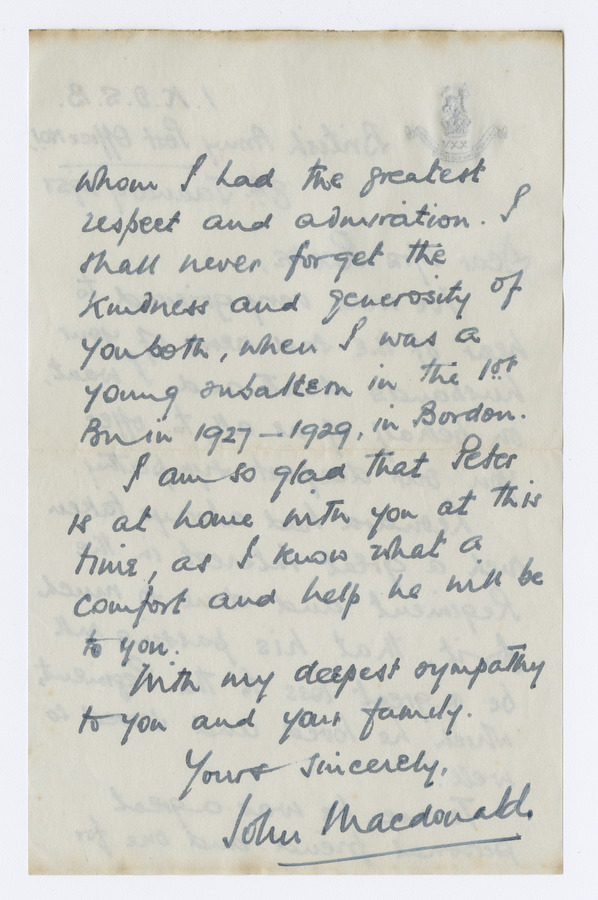 whom I had the greatest
respect and admiration. I
shall never forget the
kindness and generosity of
you both, when I was a
young subaltern in the 1st
Bn in 1927 – 1929, in Bordon.
I am so glad that Peter
is at home with you at this
time, as I know what a
comfort and help he will be
to you.
With my deepest sympathy
to you and your family.
Yours sincerely,
John Macdonald.